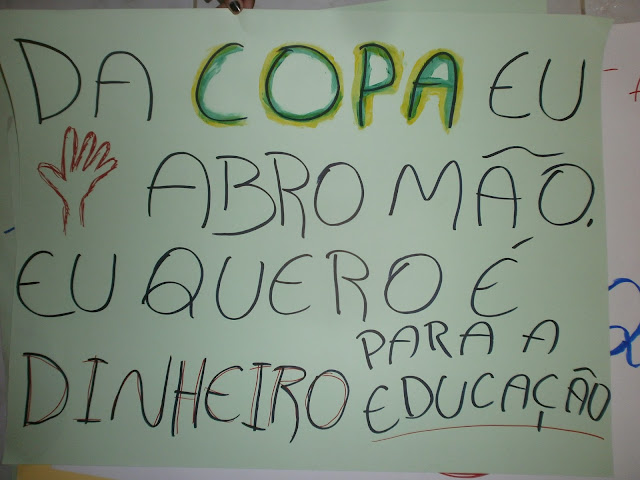 DA COPA EU
ABRO MÃO.
EU QUERO É
DINHEIRO PARA A
EDUCAÇÃO